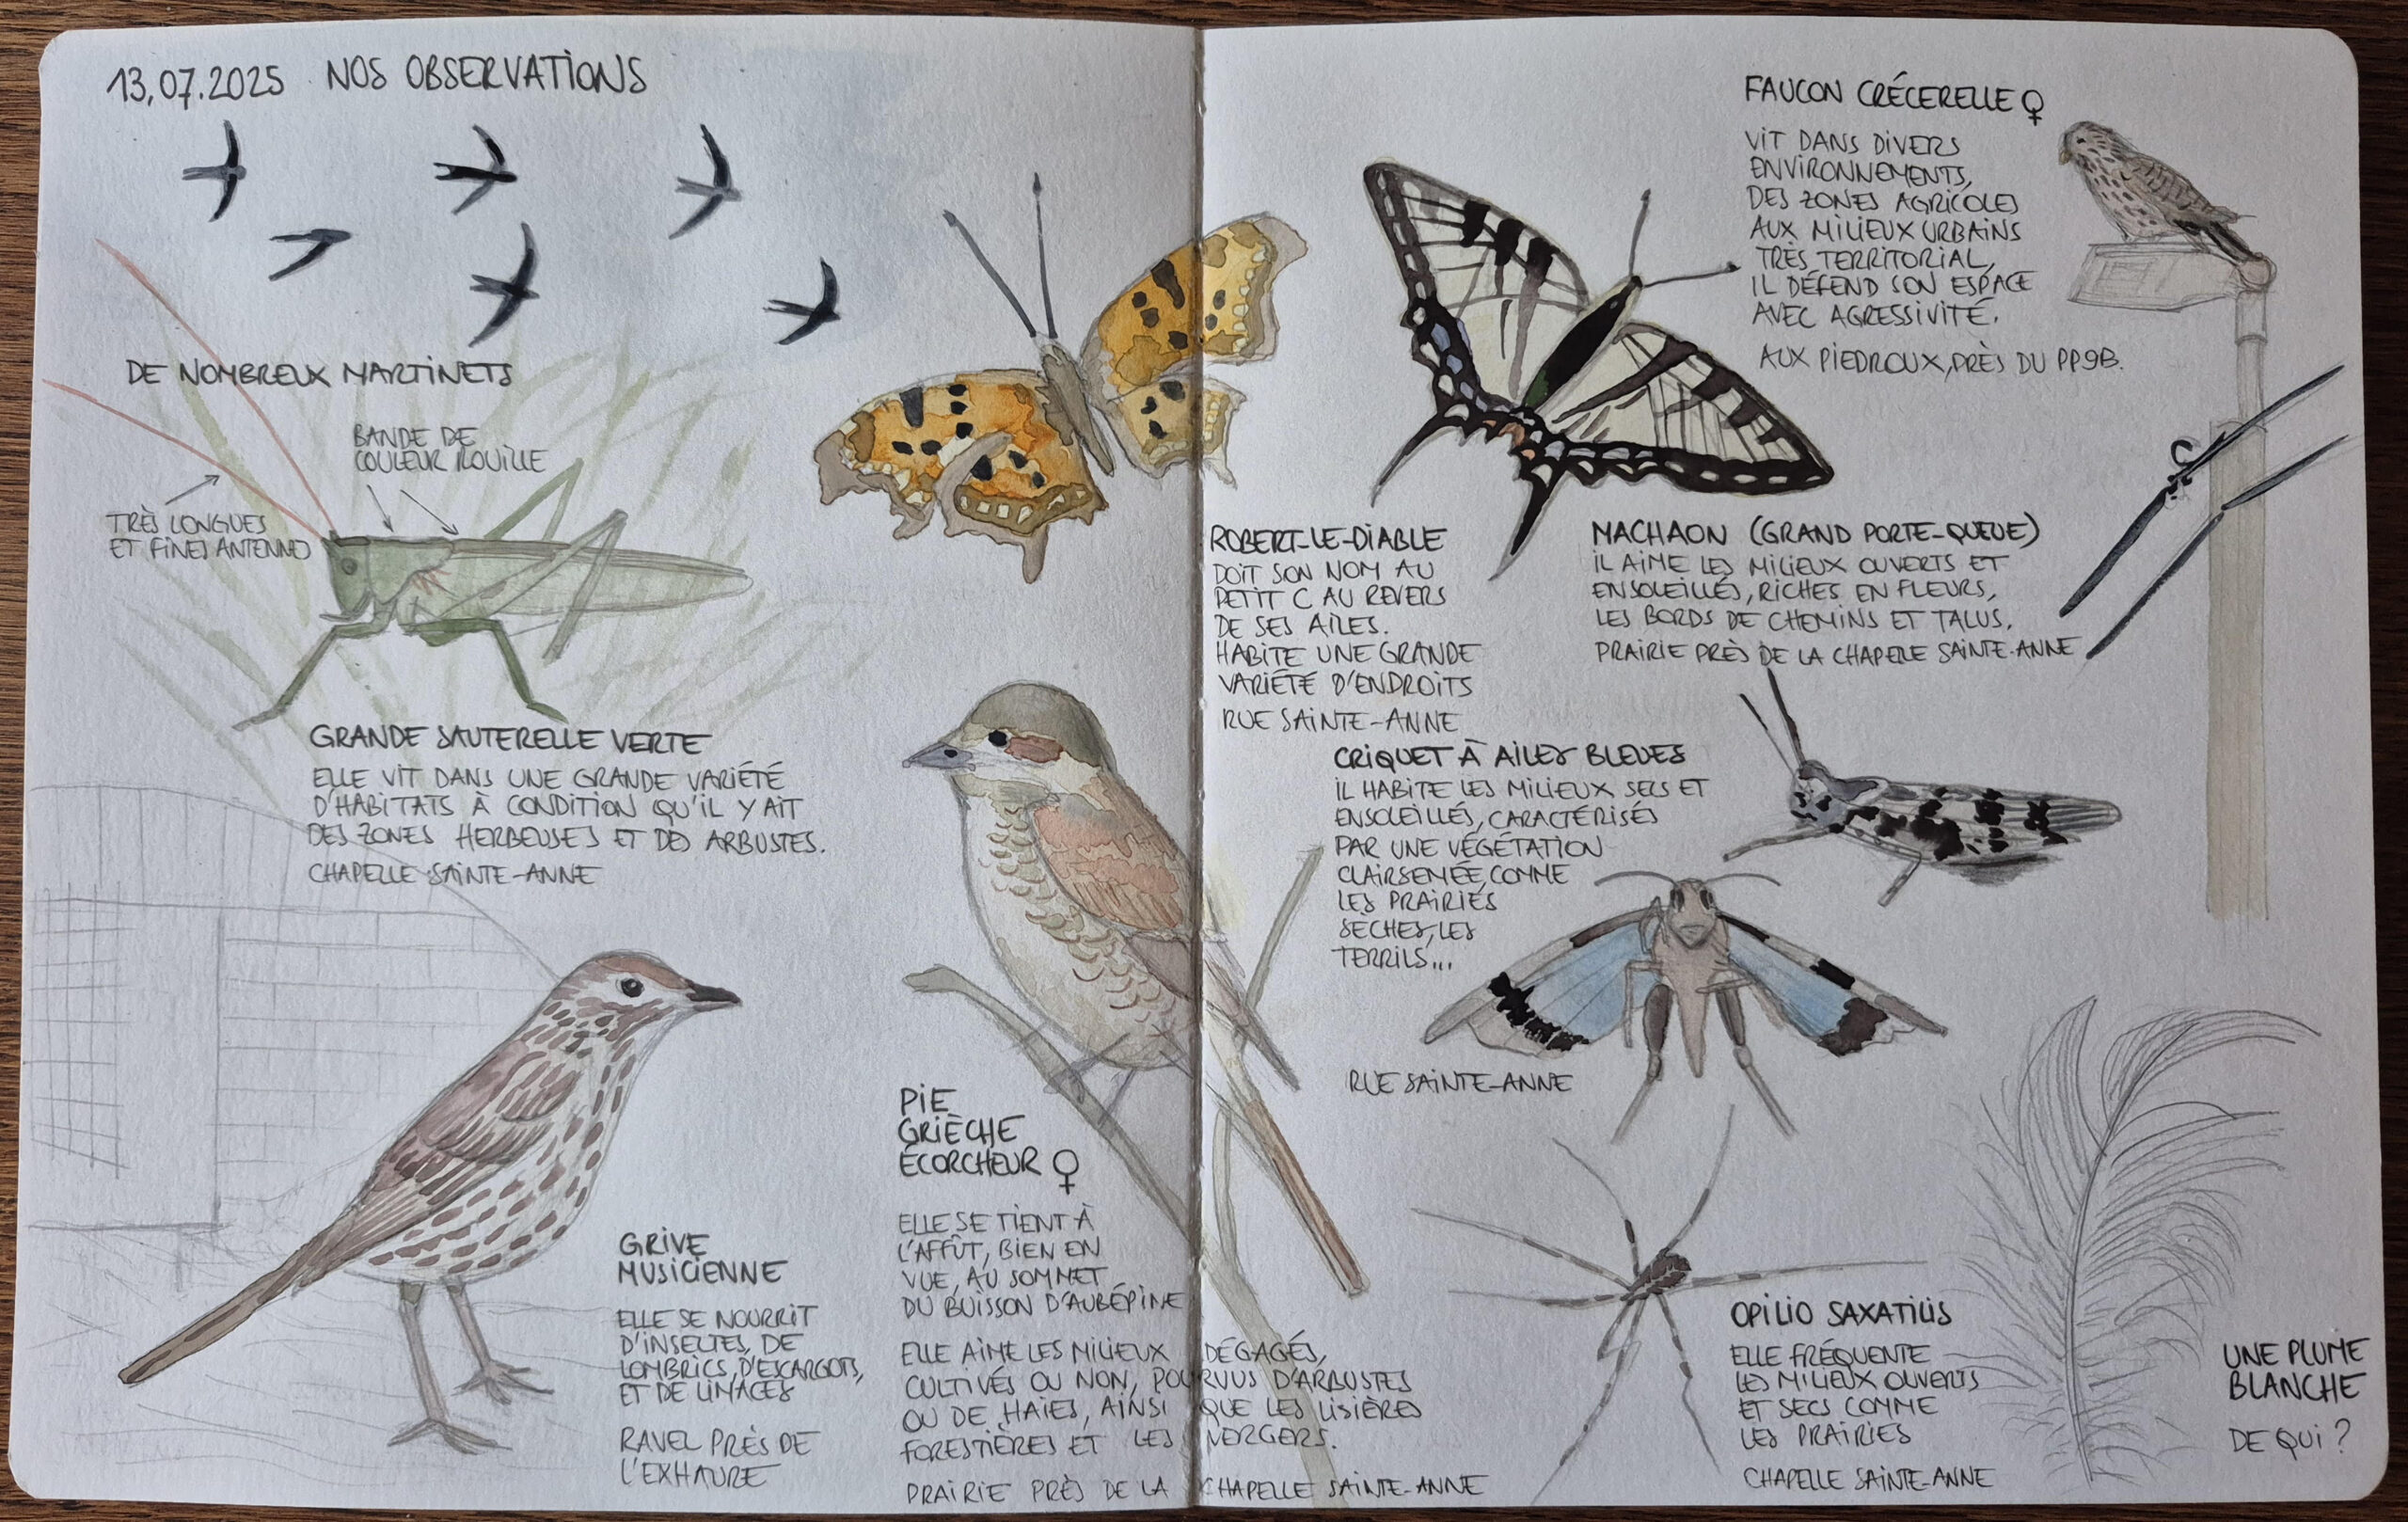 13.07.2025 NOS OBSERVATIONS
DE NOMBREUX MARTINETS
BANDE DE
COULEUR ROUILLE
TRÈS LONGUES
ET FINES ANTENNES
GRANDE SAUTERELLE VERTE
ELLE VIT DANS UNE GRANDE VARIÉTÉ
D'HABITATS À CONDITION QU'IL Y AIT
DES ZONES HERBEUSES ET DES ARBUSTES.
CHAPELLE SAINTE-ANNE
GRIVE
MUSICIENNE
ELLE SE NOURRIT
D'INSECTES, DE
LOMBRICS, D'ESCARGOTS,
ET DE LIMACES
RAVEL PRÈS DE
L'EXHAURE
PIE
GRIÈCHE
ÉCORCHEUR ♀
ELLE SE TIENT À
L'AFFÛT, BIEN EN
VUE, AU SOMMET
DU BUISSON D'AUBÉPINE
ELLE AIME LES MILIEUX DÉGAGÉS,
CULTIVÉS OU NON, POURVUS D'ARBUSTES
OU DE HAIES, AINSI QUE LES LISIÈRES
FORESTIÈRES ET LES VERGERS.
PRAIRIE PRÈS DE LA CHAPELLE SAINTE-ANNE
FAUCON CRÉCERELLE ♀
VIT DANS DIVERS
ENVIRONNEMENTS,
DES ZONES AGRICOLES
AUX MILIEUX URBAINS
TRÈS TERRITORIAL,
IL DÉFEND SON ESPACE
AVEC AGRESSIVITÉ.
AUX PIEDROUX, PRÈS DU PP9B.
ROBERT-LE-DIABLE
DOIT SON NOM AU
PETIT C AU REVERS
DE SES AILES.
HABITE UNE GRANDE
VARIÉTÉ D'ENDROITS
RUE SAINTE-ANNE
MACHAON (GRAND PORTE-QUEUE)
IL AIME LES MILIEUX OUVERTS ET
ENSOLEILLÉS, RICHES EN FLEURS,
LES BORDS DE CHEMINS ET TALUS.
PRAIRIE PRÈS DE LA CHAPELLE SAINTE-ANNE
CRIQUET À AILES BLEUES
IL HABITE LES MILIEUX SECS ET
ENSOLEILLÉS, CARACTÉRISÉS
PAR UNE VÉGÉTATION
CLAIRSEMÉE, COMME
LES PRAIRIES
SÈCHES, LES
TERRILS...
RUE SAINTE-ANNE
OPILIO SAXATILIS
ELLE FRÉQUENTE
LES MILIEUX OUVERTS
ET SECS COMME
LES PRAIRIES
CHAPELLE SAINTE-ANNE
UNE PLUME
BLANCHE
DE QUI ?